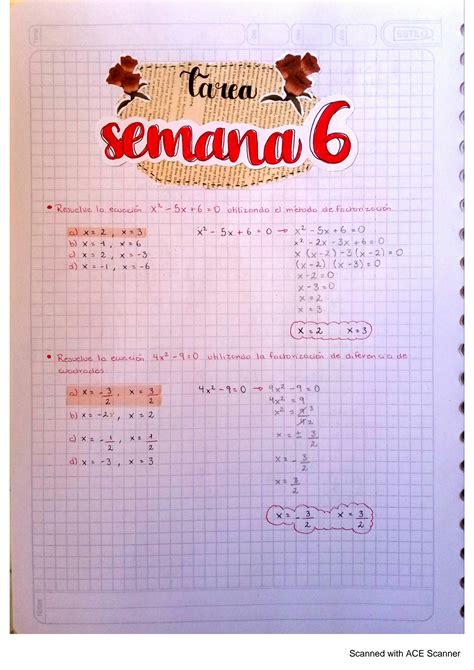 Tarea
semana 6
• Resuelve la ecuación x² - 5x + 6 = 0 utilizando el método de Factorización
a) x = 2 , x = 3
b) x = 1 , x = 6
c) x = 2 , x = -3
d) x = -1 , x = -6
x² - 5x + 6 = 0 → x² - 5x + 6 = 0
x² - 2x - 3x + 6 = 0
x (x - 2) - 3 (x - 2) = 0
(x - 2) (x - 3) = 0
x - 2 = 0
x - 3 = 0
x = 2
x = 3
x = 2 x = 3
• Resuelve la ecuación 4x² - 9 = 0 utilizando la factorización de diferencia de
cuadrados
a) x = -3/2 , x = 3/2
b) x = -2 , x = 2
c) x = -1/2 , x = 1/2
d) x = -3 , x = 3
4x² - 9 = 0 → 4x² - 9 = 0
4x² = 9
x = ± 3/2
x = -3/2
x = 3/2
x = -3/2 x = 3/2
Scanned with ACE Scanner